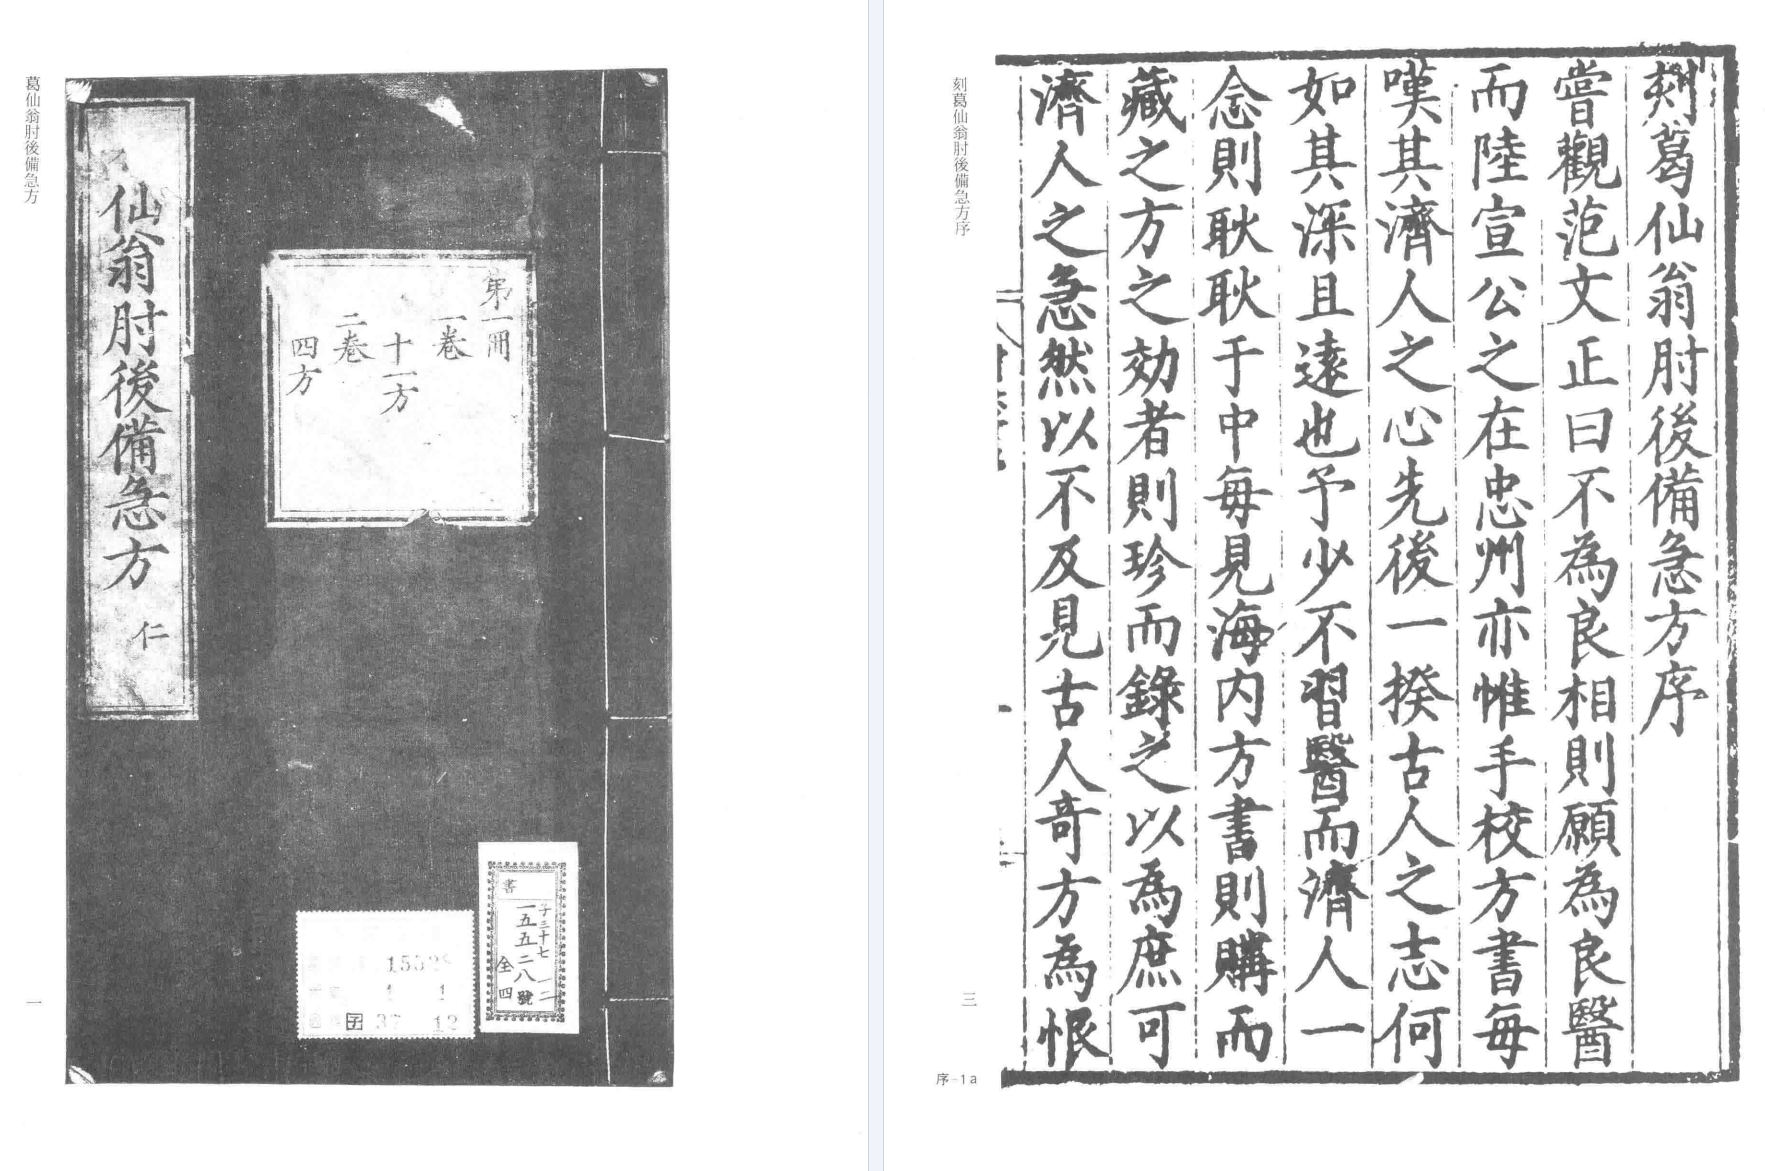 葛仙翁肘後備急方
仙翁肘後備急方 仁
第一冊
一卷
十一方
二卷
四方
書
子三十七
一五五二八號
一二
全四
1
1
子 37 12
一
刻葛仙翁肘後備急方序
嘗觀范文正曰不為良相則願為良醫
而陸宣公之在忠州亦惟手校方書每
嘆其濟人之心先後一揆古人之志何
如其深且遠也予少不習醫而濟人一
念則耿耿于中每見海内方書則購而
藏之方之効者則珍而錄之以為庶可
濟人之急然以不及見古人奇方為恨
刻葛仙翁肘後備急方序
三
序-1a